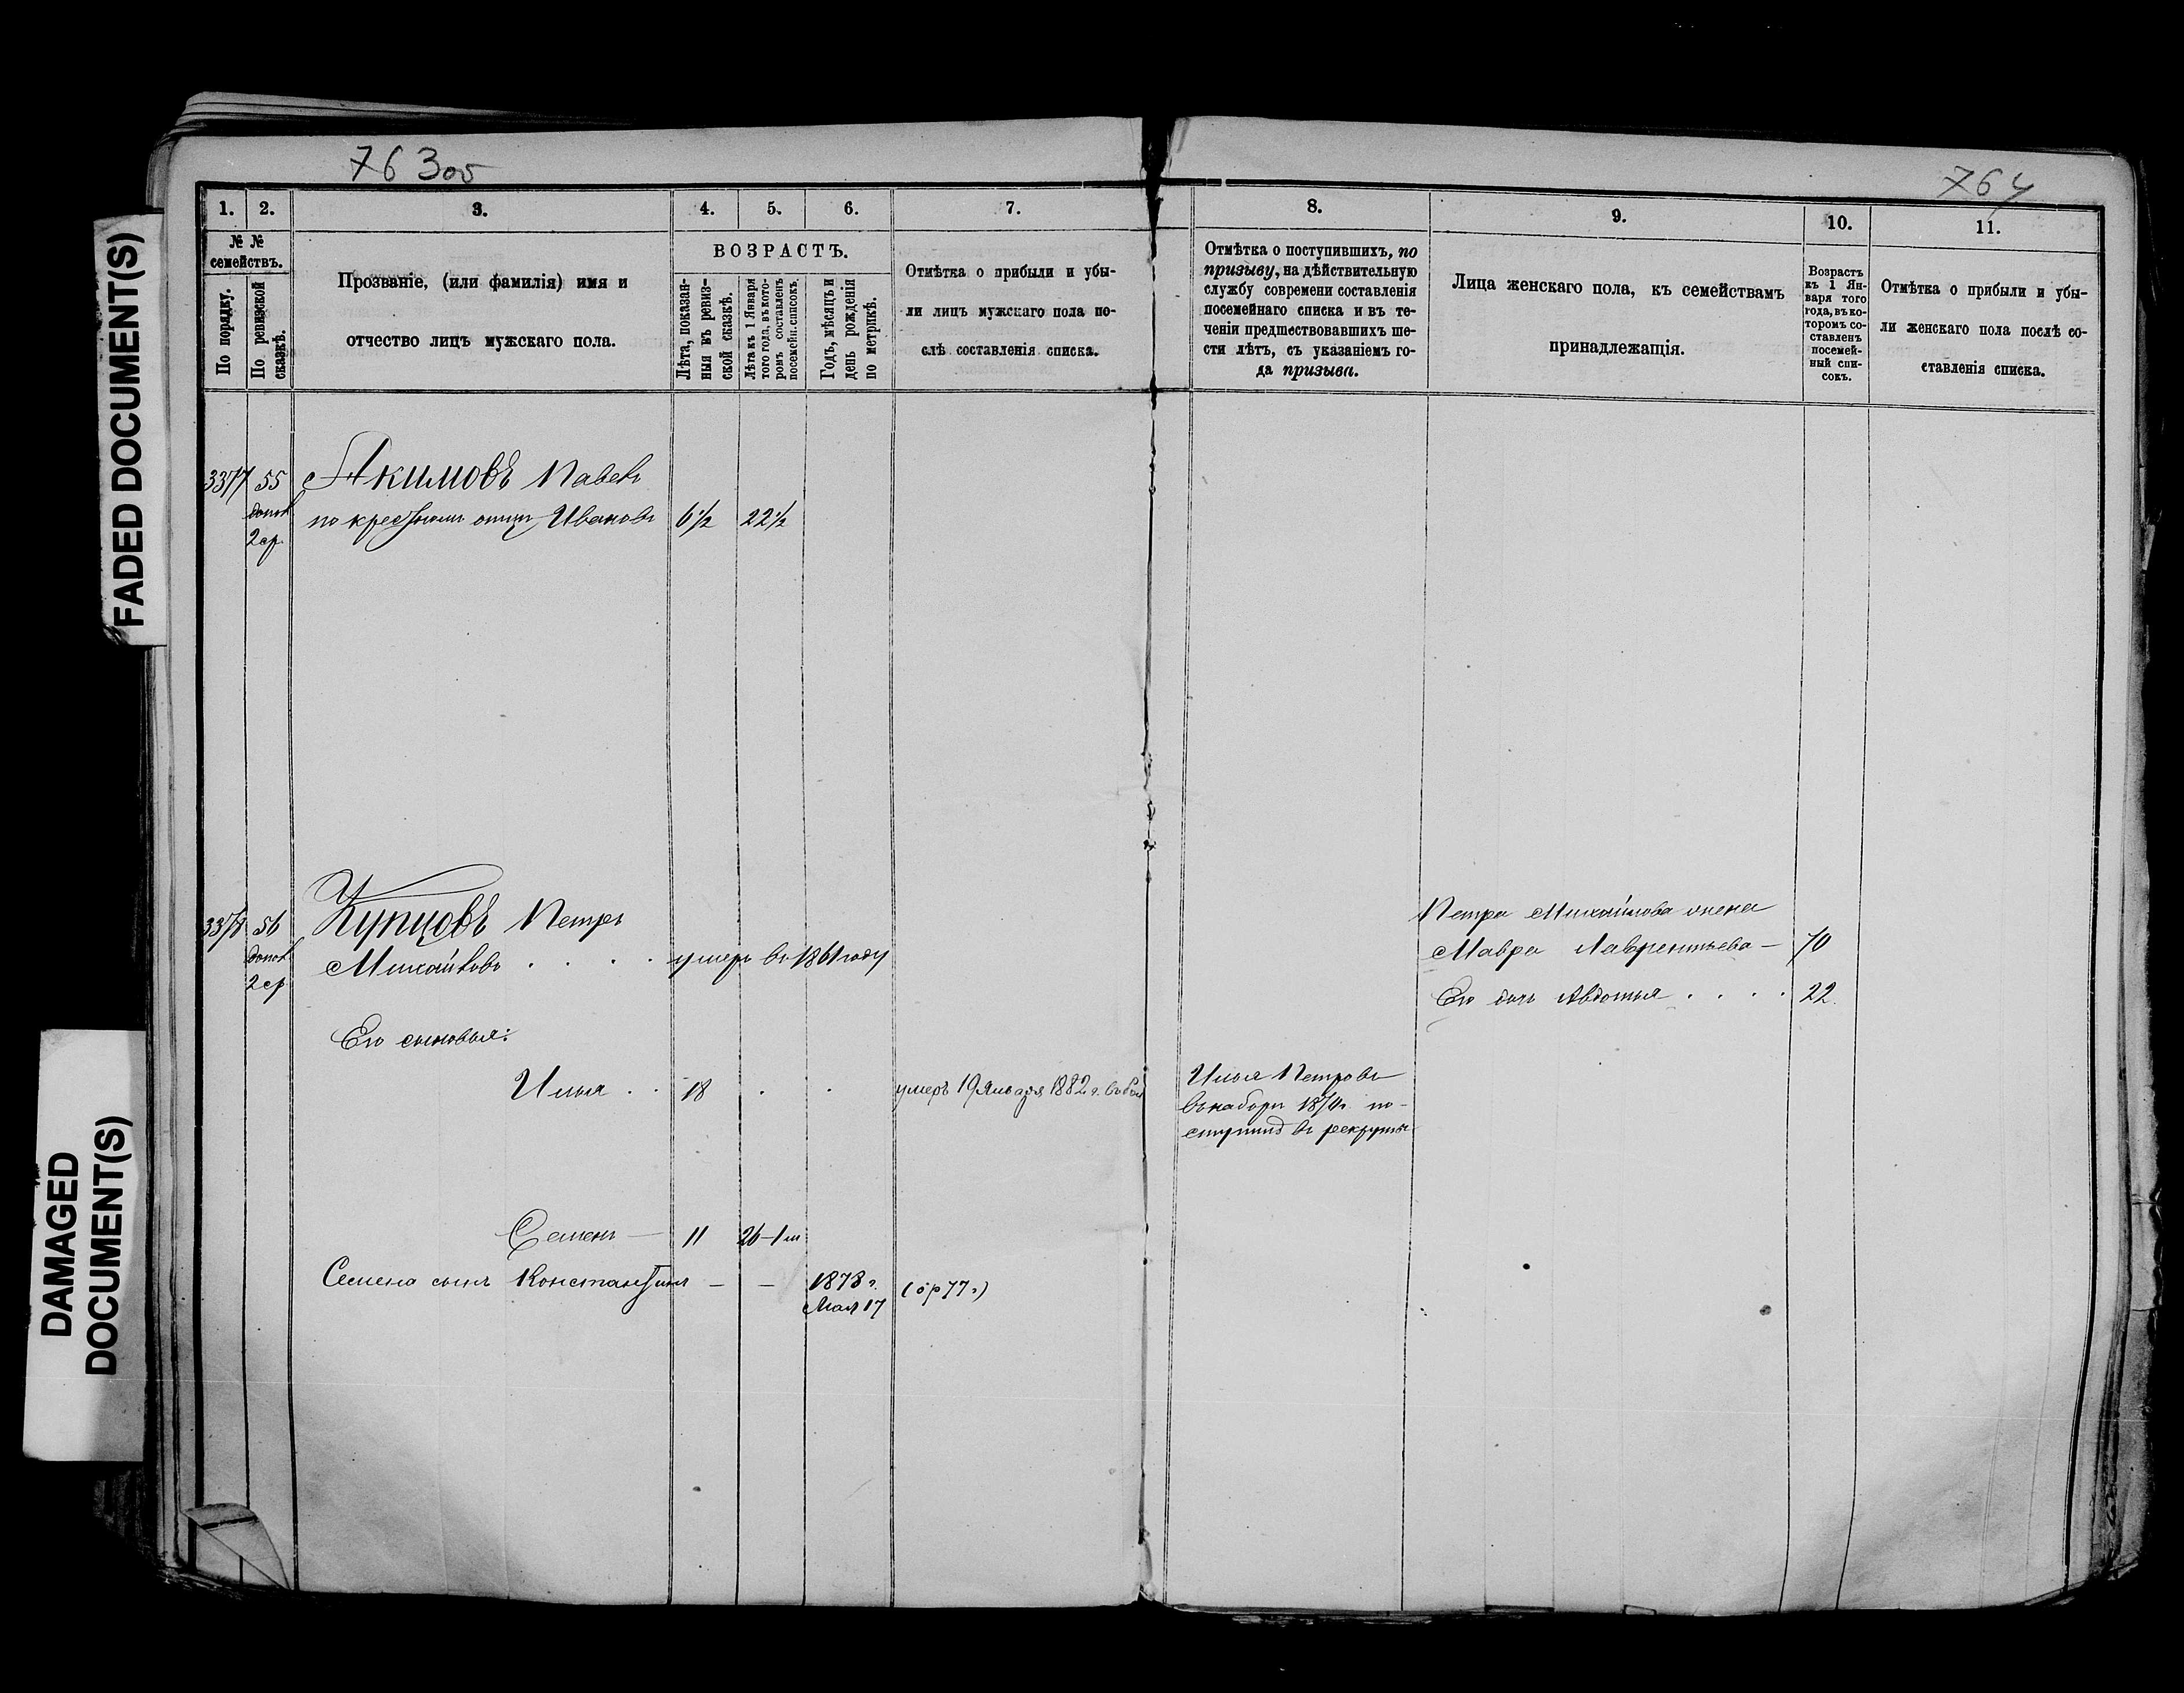 763об
764
FADED DOCUMENT(S)
DAMAGED
DOCUMENT(S)
1.
2.
3.
4.
5.
6.
7.
8.
9.
10.
11.
№ №
семействъ.
По порядку.
По ревизской
сказкѣ.
Прозваніе, (или фамилія) имя и
отчество лицъ мужскаго пола.
ВОЗРАСТЪ.
Лѣта, показан-
ныя въ ревиз-
ской сказкѣ.
Лѣта къ 1 Января
того года, въ кото-
ромъ составленъ
посемейн. списокъ.
Годъ, мѣсяцъ и
день рожденія
по метрикѣ.
Отмѣтка о прибыли и убы-
ли лицъ мужскаго пола по-
слѣ составленія списка.
Отмѣтка о поступившихъ, по
призыву, на дѣйствительную
службу современи составленія
посемейнаго списка и въ те-
ченіи предшествовавшихъ ше-
сти лѣтъ, съ указаніемъ го-
да призыва.
Лица женскаго пола, къ семействамъ
принадлежащія.
Возрастъ
къ 1 Ян-
варя того
года, въ ко-
торомъ со-
ставленъ
посемей-
ный спи-
сокъ.
Отмѣтка о прибыли и убы-
ли женскаго пола послѣ со-
ставленія списка.
3377 55 Якимовъ Павелъ
допол по крестному отцу Ивановъ 6½ 22½
2 ср.
3378 56 Купцовъ Петръ
допол Михайловъ . . . . умеръ въ 1861 году
2 ср
Петра Михайлова жена
Мавра Лаврентьева — 70
Его дочь Авдотья . . . . 22.
Его сыновья:
Илья . . 18 . . умеръ 19 Января 1882 г.
Илья Петровъ
въ наборъ 1874г. по-
ступилъ въ рекруты
Семенъ — 11 26-1 м
Семена сынъ Константинъ — — 1878 г. (ор 77 г.)
Мая 17